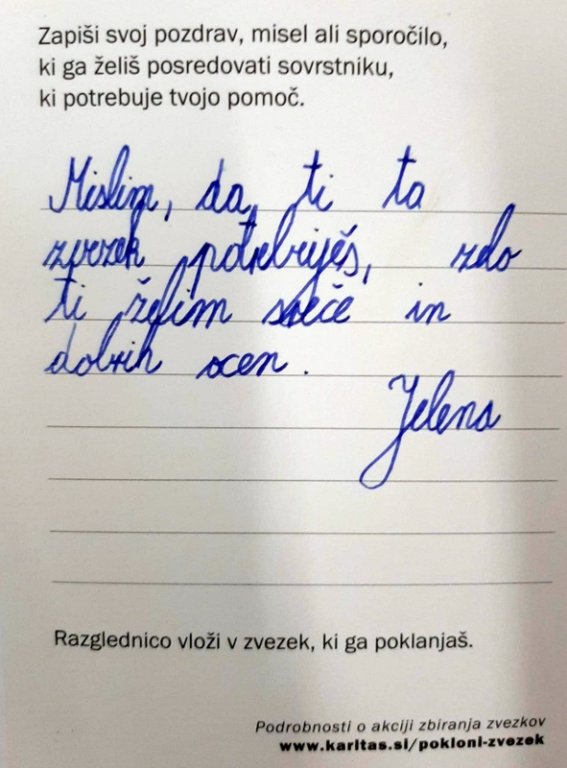 Zapiši svoj pozdrav, misel ali sporočilo,
ki ga želiš posredovati sovrstniku,
ki potrebuje tvojo pomoč.
Mislim, da ti ta
zvezek potrebuješ, zelo
ti želim sreče in
dobrih ocen.
Jelena
Razglednico vloži v zvezek, ki ga poklanjaš.
Podrobnosti o akciji zbiranja zvezkov
www.karitas.si/pokloni-zvezek